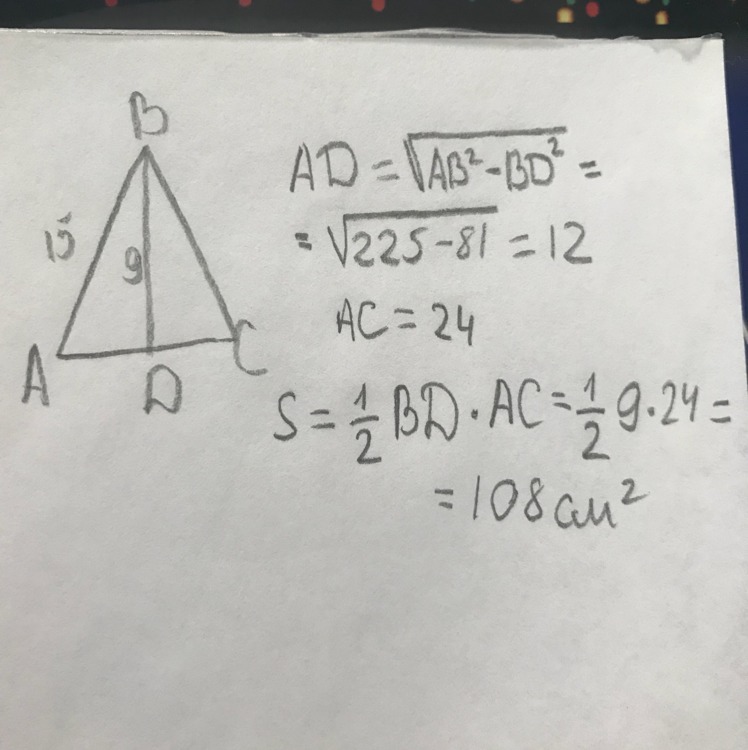 B
15
9
A
D
C
AD = √AB² - BD² =
= √225 - 81 = 12
AC = 24
S = 1/2 BD · AC = 1/2 9 · 24 =
= 108 см²